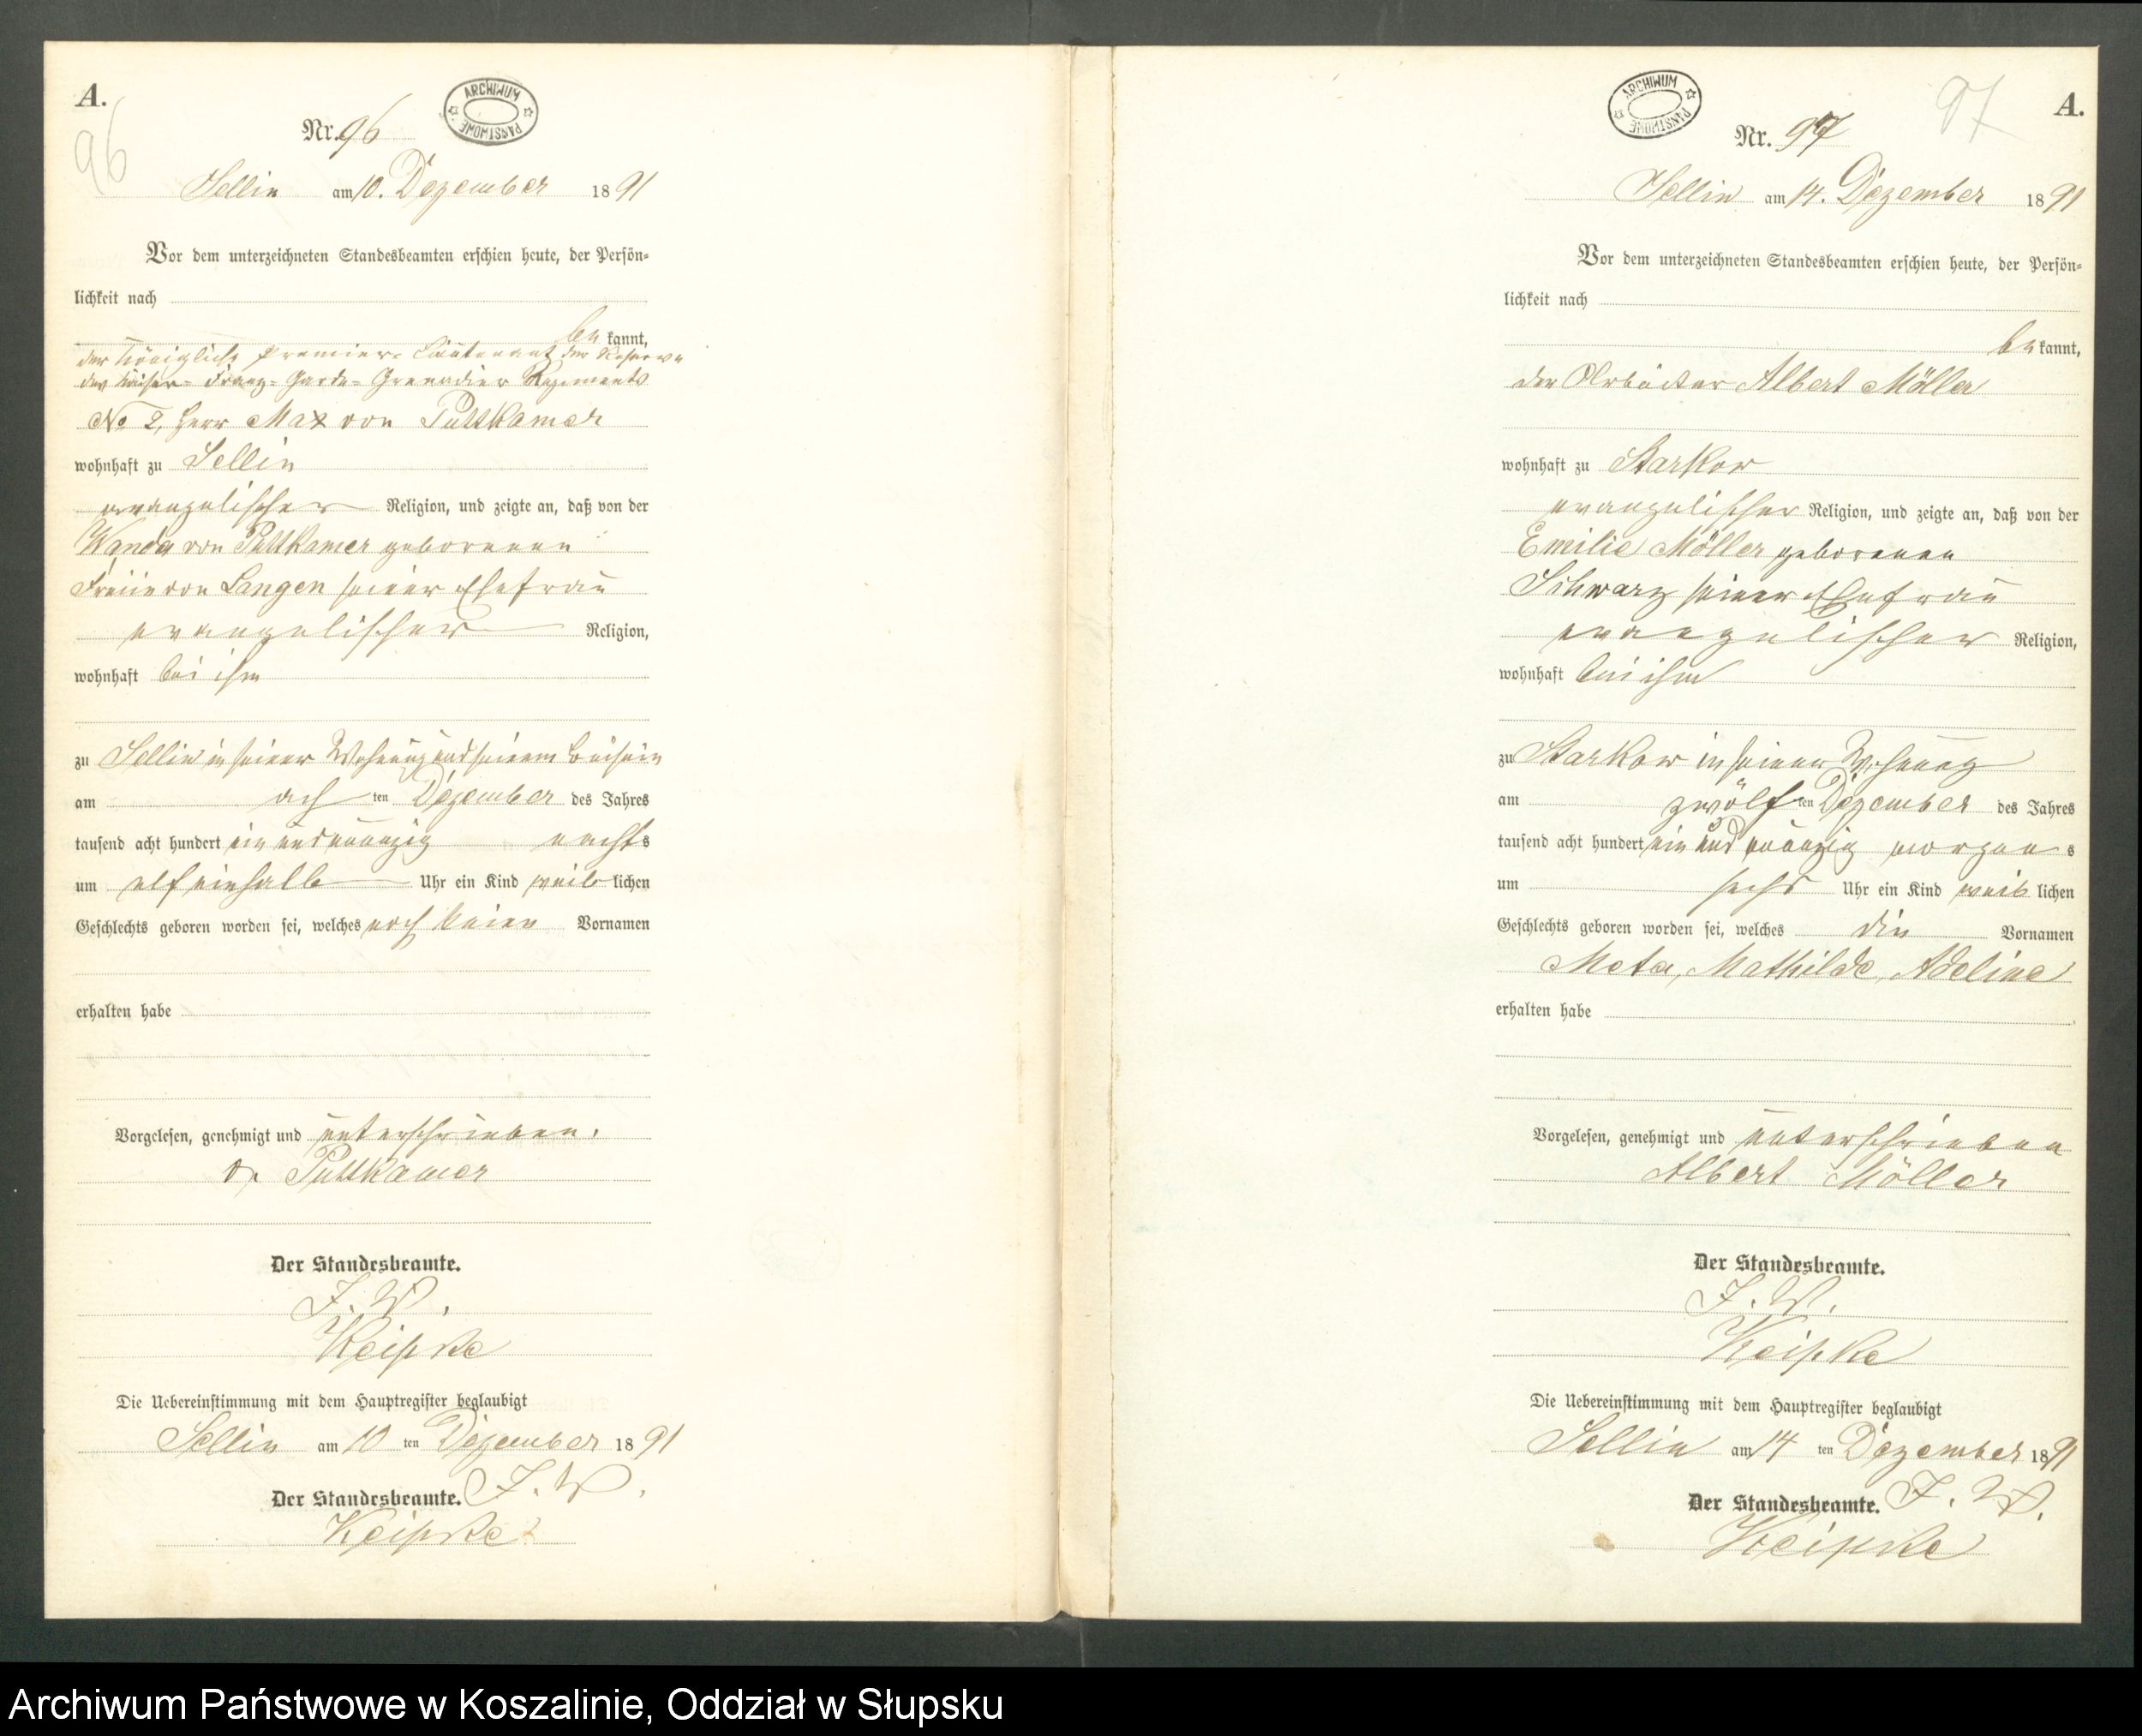 A.
96
Nr. 96
ARCHIWUM PAŃSTWOWE
Sellin am 10. Dezember 1891
Vor dem unterzeichneten Standesbeamten erschien heute, der Persön-
lichkeit nach
be kannt,
der Königliche Premier-Lieutenant der Reserve
des Kaiser-Franz-Garde-Grenadier Regiments
No 2, Herr Max von Puttkamer
wohnhaft zu Sellin
evangelischer Religion, und zeigte an, daß von der
Wanda von Puttkamer geborenen
Freiin von Langen seiner Ehefrau
evangelischer Religion,
wohnhaft bei ihm
zu Sellin in seiner Wohnung und seinem Beisein
am ach ten Dezember des Jahres
tausend acht hundert ein und neunzig nachts
um elf einhalb Uhr ein Kind weib lichen
Geschlechts geboren worden sei, welches noch keinen Vornamen
erhalten habe
Vorgelesen, genehmigt und unterschrieben.
v. Puttkamer
Der Standesbeamte.
J. V.
Keipke
Die Uebereinstimmung mit dem Hauptregister beglaubigt
Sellin am 10 ten Dezember 1891
Der Standesbeamte. J. V.
Keipke
ARCHIWUM PAŃSTWOWE
97
A.
Nr. 97
Sellin am 14. Dezember 1891
Vor dem unterzeichneten Standesbeamten erschien heute, der Persön-
lichkeit nach
be kannt,
der Arbeiter Albert Möller
wohnhaft zu Starkow
evangelischer Religion, und zeigte an, daß von der
Emilie Möller geborenen
Schwarz seiner Ehefrau
evangelischer Religion,
wohnhaft bei ihm
zu Starkow in seiner Wohnung
am zwölf ten Dezember des Jahres
tausend acht hundert ein und neunzig morgens
um sechs Uhr ein Kind weib lichen
Geschlechts geboren worden sei, welches die Vornamen
Meta, Mathilde, Adeline
erhalten habe
Vorgelesen, genehmigt und unterschrieben
Albert Möller
Der Standesbeamte.
J. V.
Keipke
Die Uebereinstimmung mit dem Hauptregister beglaubigt
Sellin am 14 ten Dezember 1891
Der Standesbeamte. J. V.
Keipke
Archiwum Państwowe w Koszalinie, Oddział w Słupsku